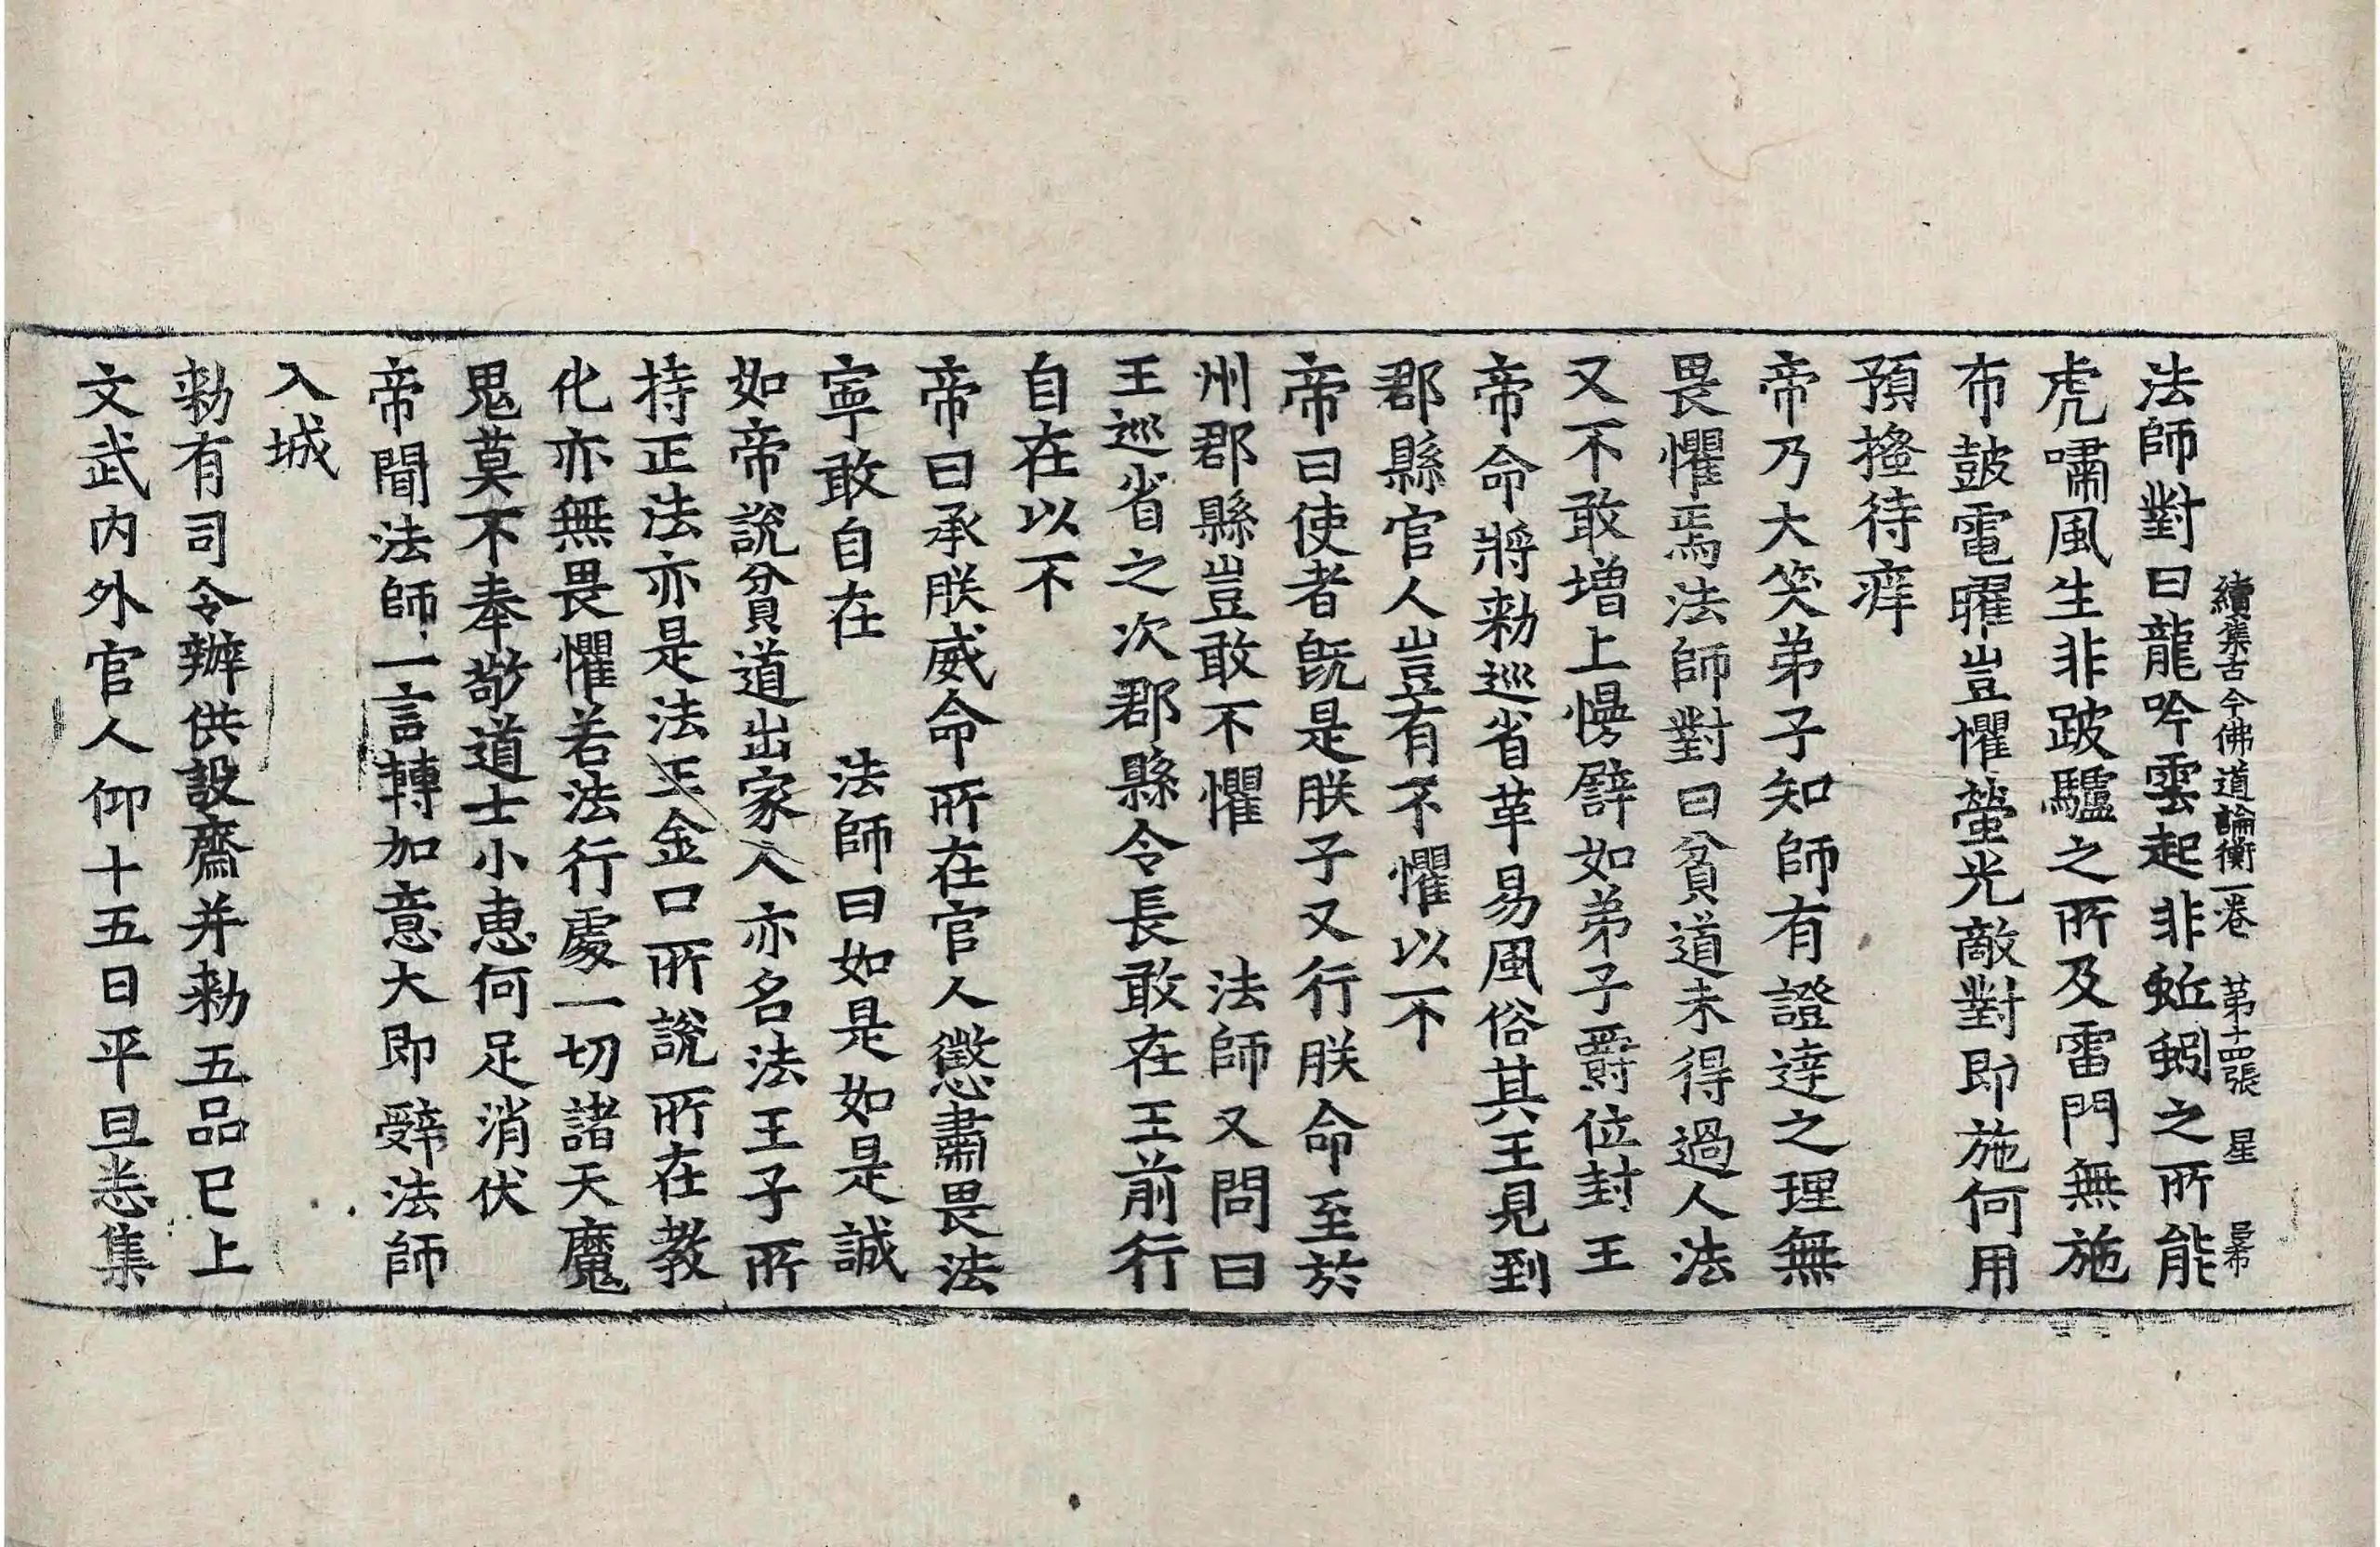 續集古今佛道論衡一卷 第十四張 星
法師對曰龍吟雲起非蚯蚓之所能
虎嘯風生非跛驢之所及雷門無施
布鼓電曜豈懼螢光敵對即施何用
預搔待痒
帝乃大笑弟子知師有證達之理無
畏懼焉法師對曰貧道未得過人法
又不敢增上慢譬如弟子爵位封王
帝命將勑巡省革易風俗其王見到
郡縣官人豈有不懼以不
帝曰使者既是朕子又行朕命至於
州郡縣豈敢不懼 法師又問曰
王巡省之次郡縣令長敢在王前行
自在以不
帝曰承朕威命所在官人懲肅畏法
寧敢自在 法師曰如是如是誠
如帝說貧道出家人亦名法王子所
持正法亦是法王金口所說所在教
化亦無畏懼若法行處一切諸天魔
鬼莫不奉敬道士小惠何足消伏
帝聞法師一言轉加意大即辝法師
入城
勑有司令辦供設齋并勑五品已上
文武內外官人仰十五日平旦悉集